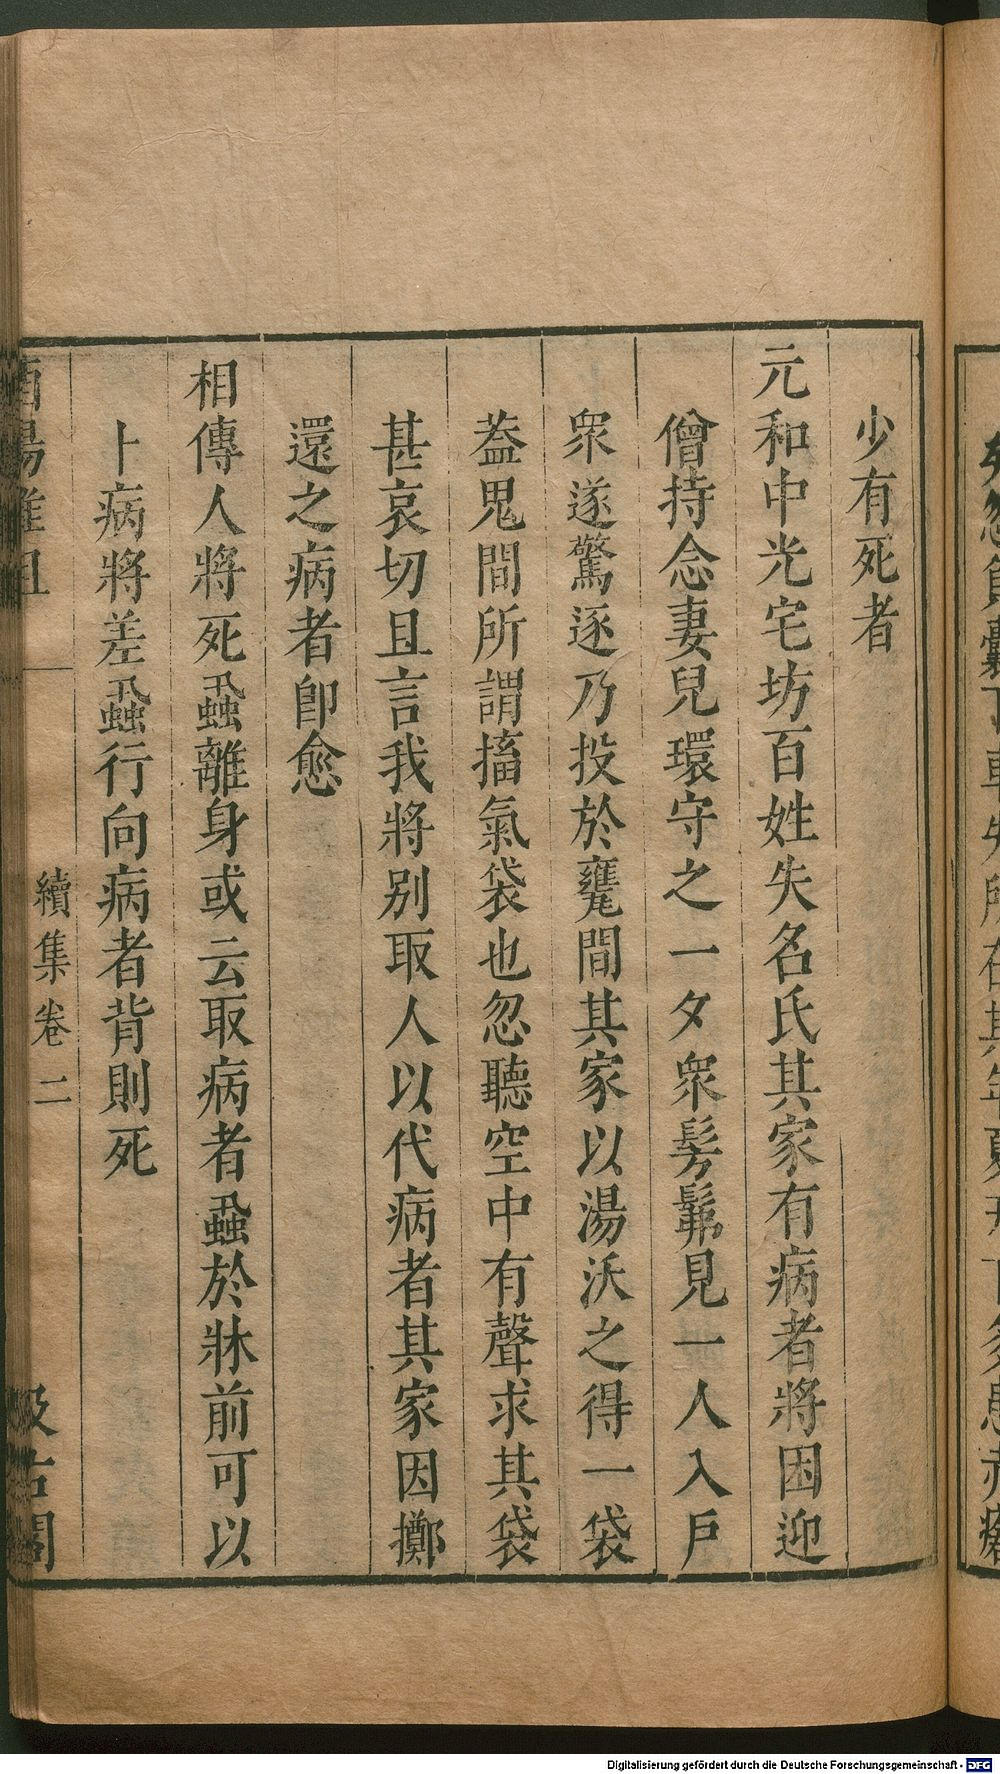 少有死者
元和中光宅坊百姓失名氏其家有病者將困迎
僧持念妻兒環守之一夕衆髣髴見一人入戶
衆遂驚逐乃投於甕間其家以湯沃之得一袋
葢鬼間所謂搐氣袋也忽聽空中有聲求其袋
甚哀切且言我將别取人以代病者其家因擲
還之病者卽愈
相傳人將死蝨離身或云取病者蝨於牀前可以
卜病將差蝨行向病者背則死
酉陽雜俎
續集卷二
汲古閣
Digitalisierung gefördert durch die Deutsche Forschungsgemeinschaft - DFG